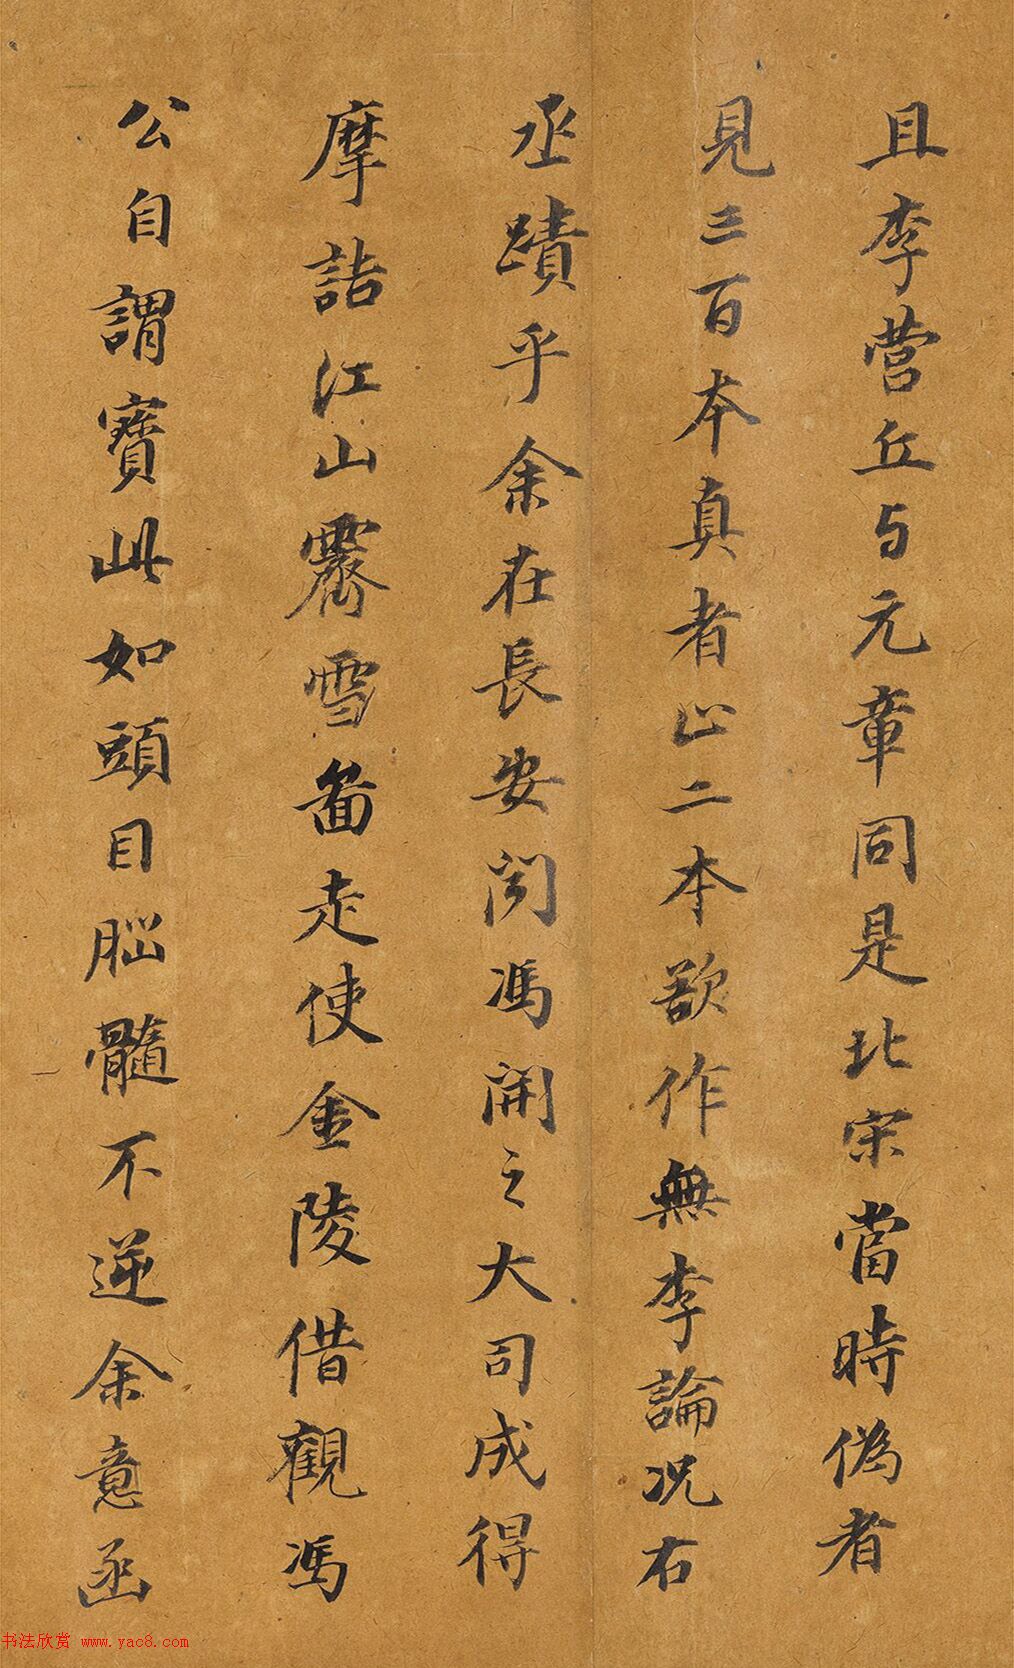 且李營丘与元章同是北宋當時偽者
見三百本真者止二本欲作無李論况右
丞蹟乎余在長安聞馮開之大司成得
摩詰江山霽雪啚走使金陵借觀馮
公自謂寶此如頭目脳髓不逆余意函
书法欣赏 www.yac8.com